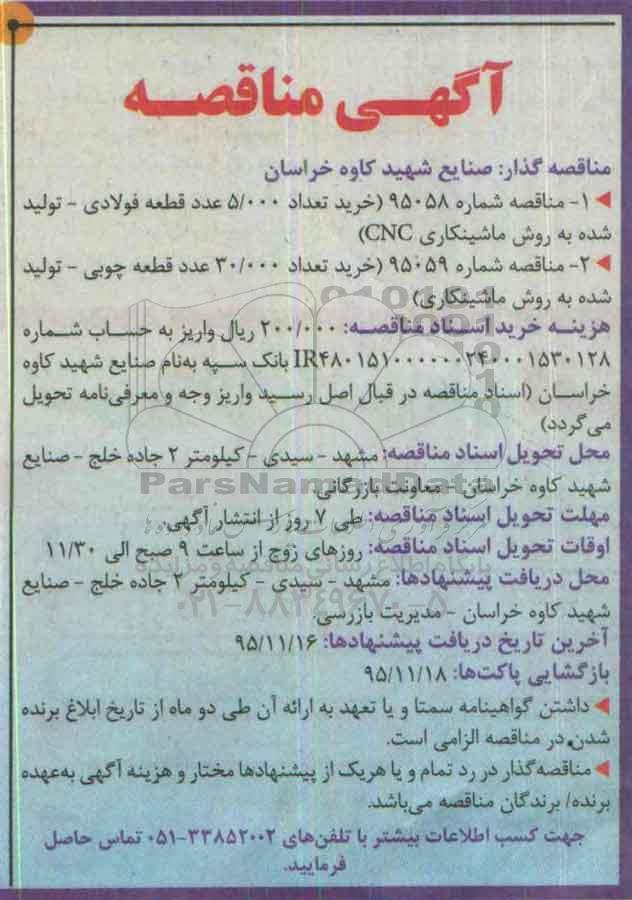 آگهی مناقصه
مناقصه گذار: صنایع شهید کاوه خراسان
۱- مناقصه شماره ۹۵۰۵۸ (خرید تعداد ۵/۰۰۰ عدد قطعه فولادی - تولید
شده به روش ماشینکاری CNC)
۲- مناقصه شماره ۹۵۰۵۹ (خرید تعداد ۳۰/۰۰۰ عدد قطعه چوبی - تولید
شده به روش ماشینکاری)
هزینه خرید اسناد مناقصه: ۲۰۰/۰۰۰ ریال واریز به حساب شماره
IR۴۸۰۱۵۱۰۰۰۰۰۰۲۴۰۰۰۱۵۳۰۱۲۸ بانک سپه به‌نام صنایع شهید کاوه
خراسان (اسناد مناقصه در قبال اصل رسید واریز وجه و معرفی‌نامه تحویل
می‌گردد)
محل تحویل اسناد مناقصه: مشهد - سیدی - کیلومتر ۲ جاده خلج - صنایع
شهید کاوه خراسان - معاونت بازرگانی.
ParsNamadData
مهلت تحویل اسناد مناقصه: طی ۷ روز از انتشار آگهی.
اوقات تحویل اسناد مناقصه: روزهای زوج از ساعت ۹ صبح الی ۱۱/۳۰
پایگاه اطلاع رسانی مناقصه و مزایده
محل دریافت پیشنهادها: مشهد - سیدی - کیلومتر ۲ جاده خلج - صنایع
۰۲۱-۸۸۳۴۹۶۷۰-۵
شهید کاوه خراسان - مدیریت بازرسی.
آخرین تاریخ دریافت پیشنهادها: ۹۵/۱۱/۱۶
بازگشایی پاکت‌ها: ۹۵/۱۱/۱۸
داشتن گواهینامه سمتا و یا تعهد به ارائه آن طی دو ماه از تاریخ ابلاغ برنده
شدن در مناقصه الزامی است.
مناقصه‌گذار در رد تمام و یا هریک از پیشنهادها مختار و هزینه آگهی به‌عهده
برنده/ برندگان مناقصه می‌باشد.
جهت کسب اطلاعات بیشتر با تلفن‌های ۳۳۸۵۲۰۰۲-۰۵۱ تماس حاصل
فرمایید.